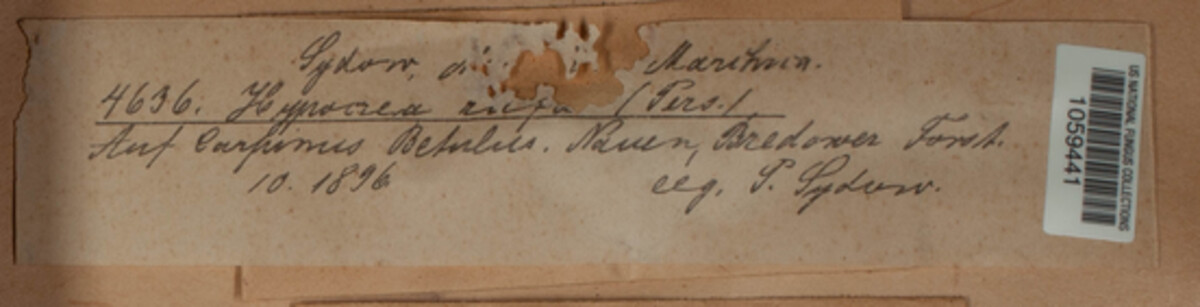 Sydow, Marchica.
4636. Hypocrea rufa (Pers.)
Auf Carpinus Betulus. Nauen, Bredower Forst.
10. 1896 leg. P. Sydow.
US NATIONAL FUNGUS COLLECTIONS
1059441